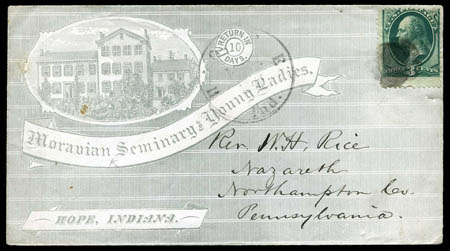 RETURN IN
10
DAYS.
Moravian Seminary for Young Ladies.
HOPE, INDIANA.
3 CENTS
Rev. W. H. Rice
Nazareth
Northampton Co.
Pennsylvania.